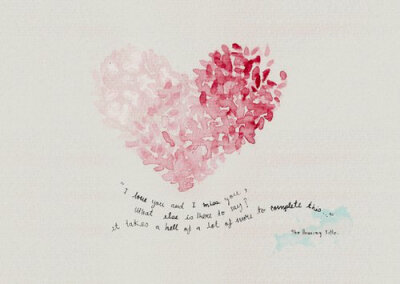 "I love you and I miss you,
What else is there to say?
it takes a hell of a lot of more to complete this..."
The Title.